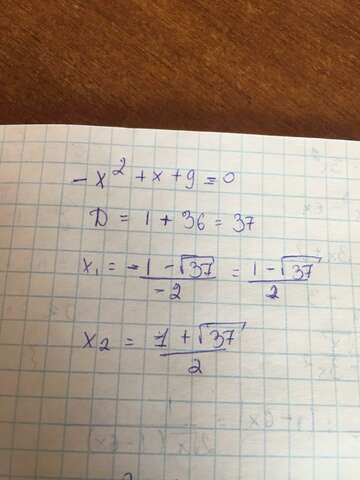 -x² + x + 9 = 0
D = 1 + 36 = 37
x₁ = (-1 - √37)/(-2) = (1 - √37)/2
x₂ = (1 + √37)/2